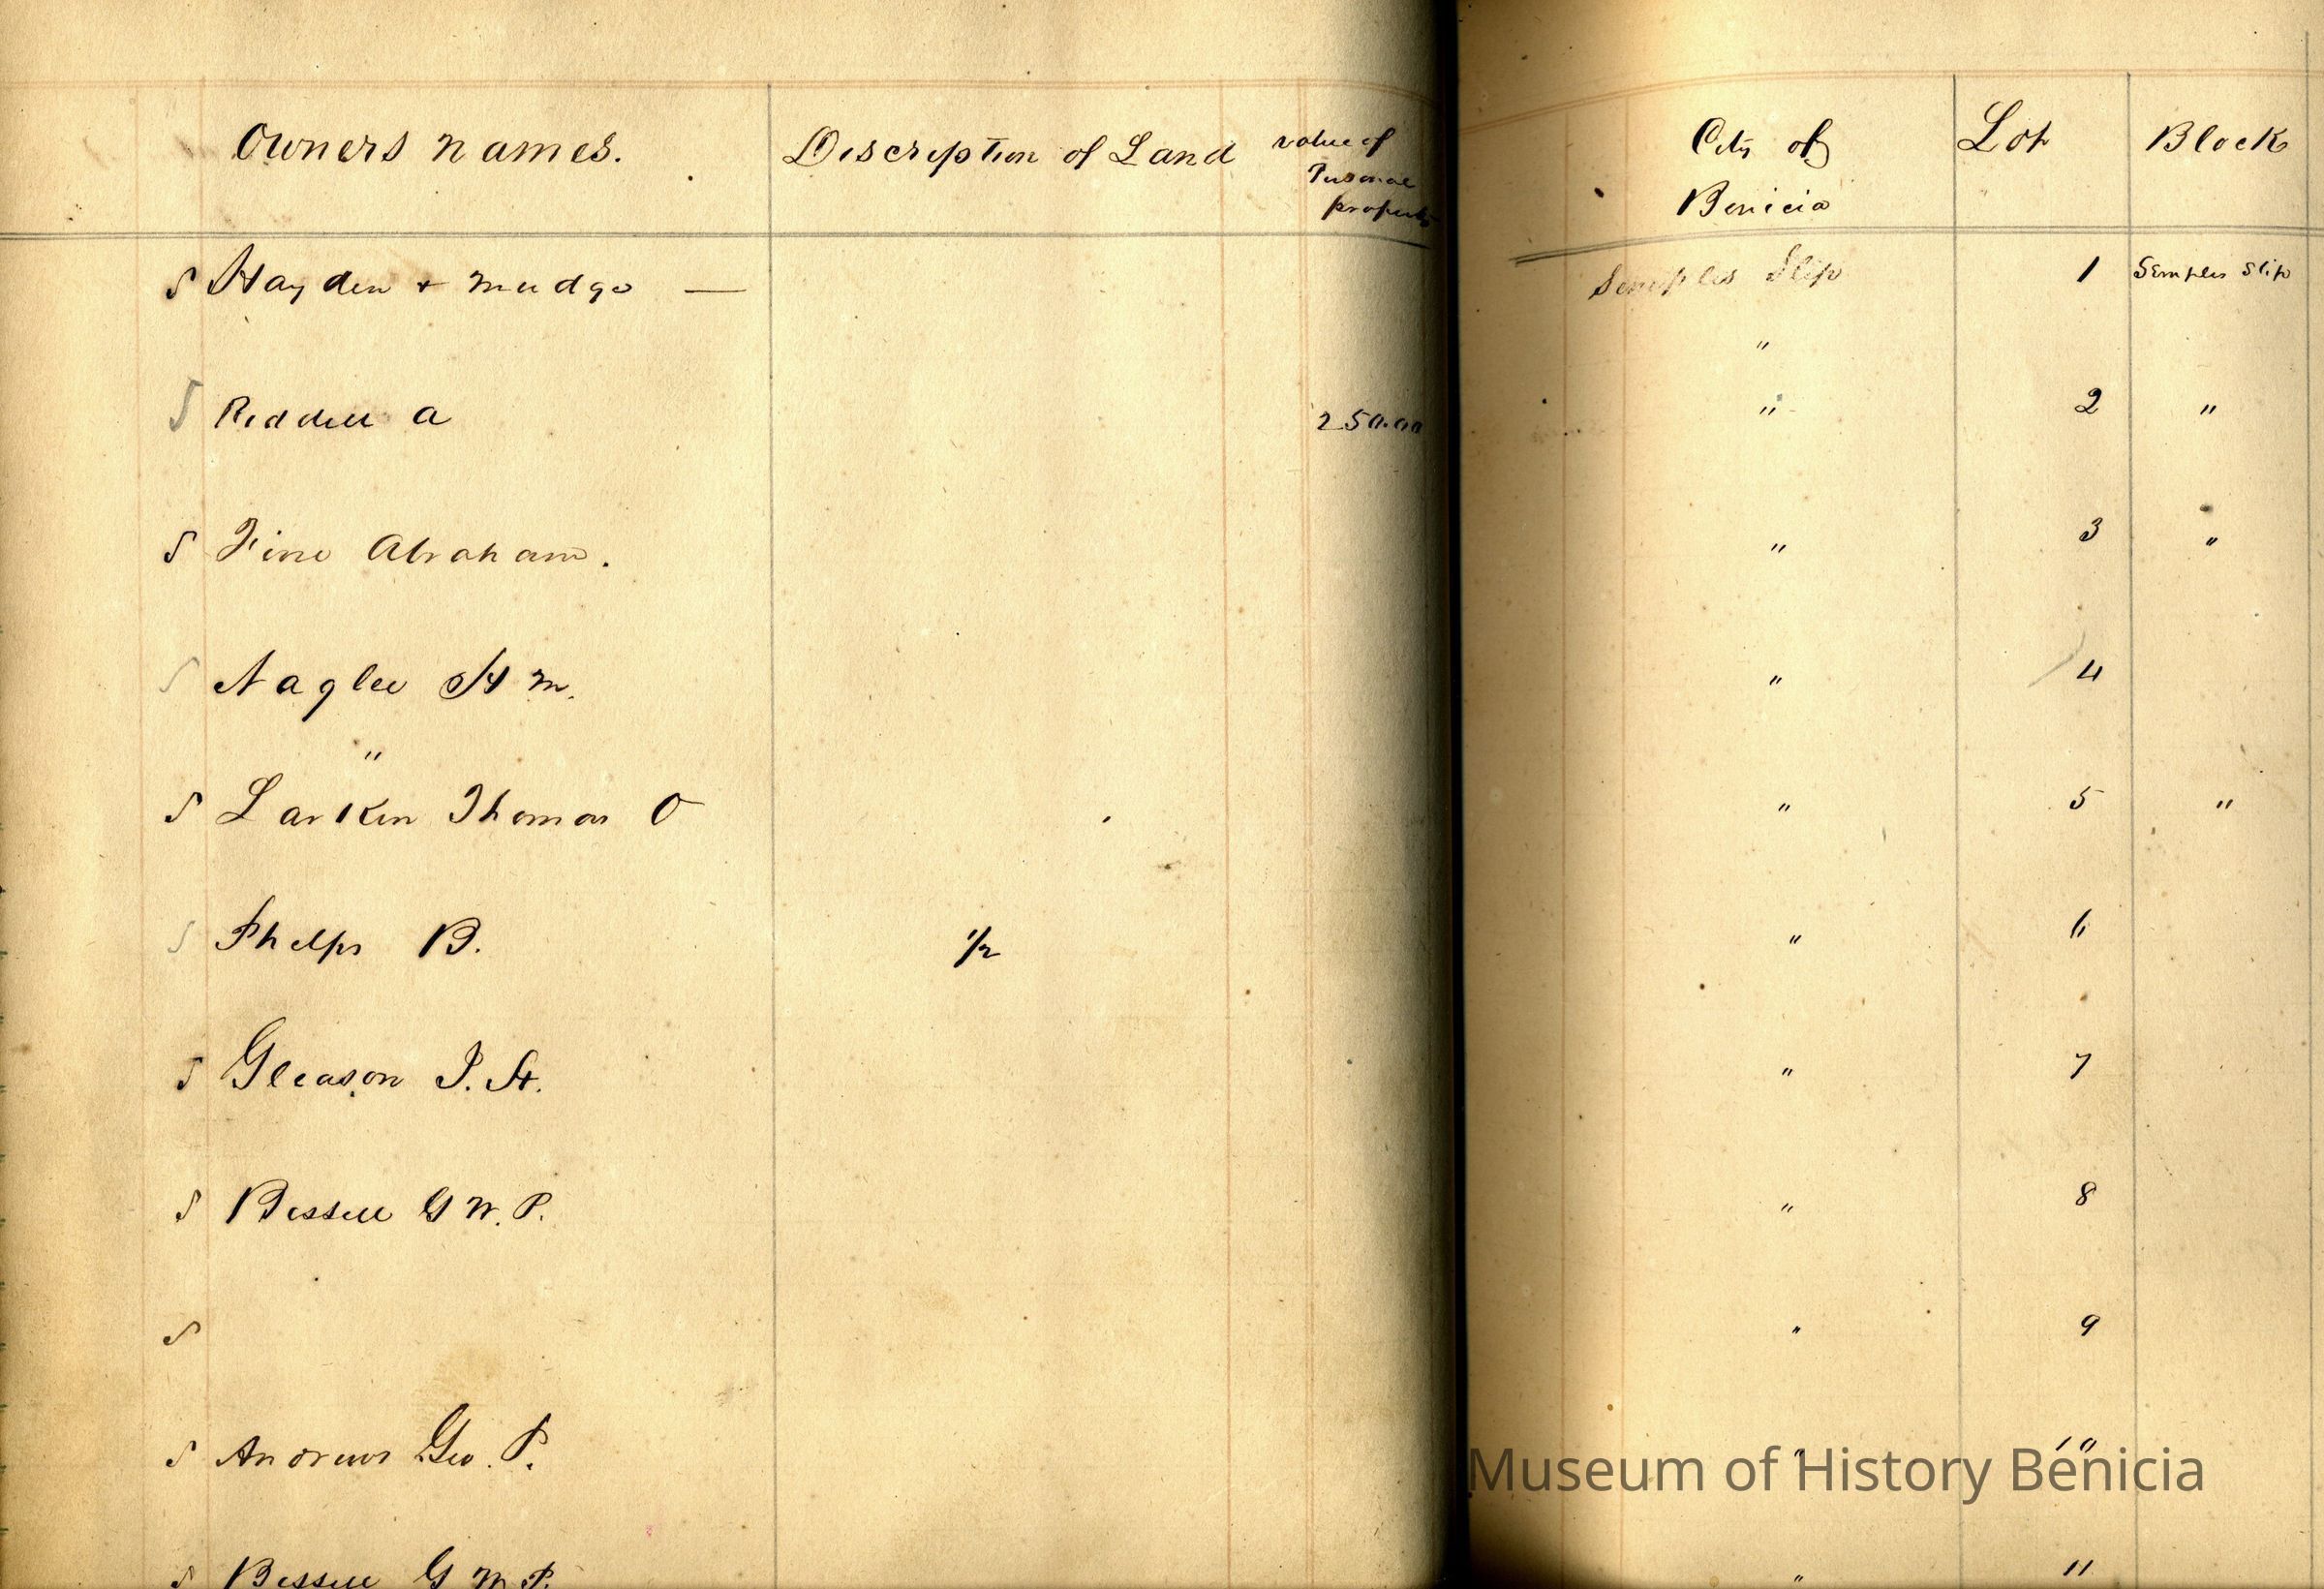 Owners names. Description of Land value of Personal property City of Benicia Lot Block
S Hayden + Mudge — Semples Slip 1 Semples Slip
"
S Riddell A 250.00 " 2 "
S Fine Abraham. " 3 "
S Naglee H M. " 4
"
S Larkin Thomas O " 5 "
S Phelps B. 1/2 " 6
S Gleason J. H. " 7
S Bissell G W. P. " 8
S " 9
S Andrews Geo. P. " 10
Museum of History Benicia
S Bissell G W P. " 11